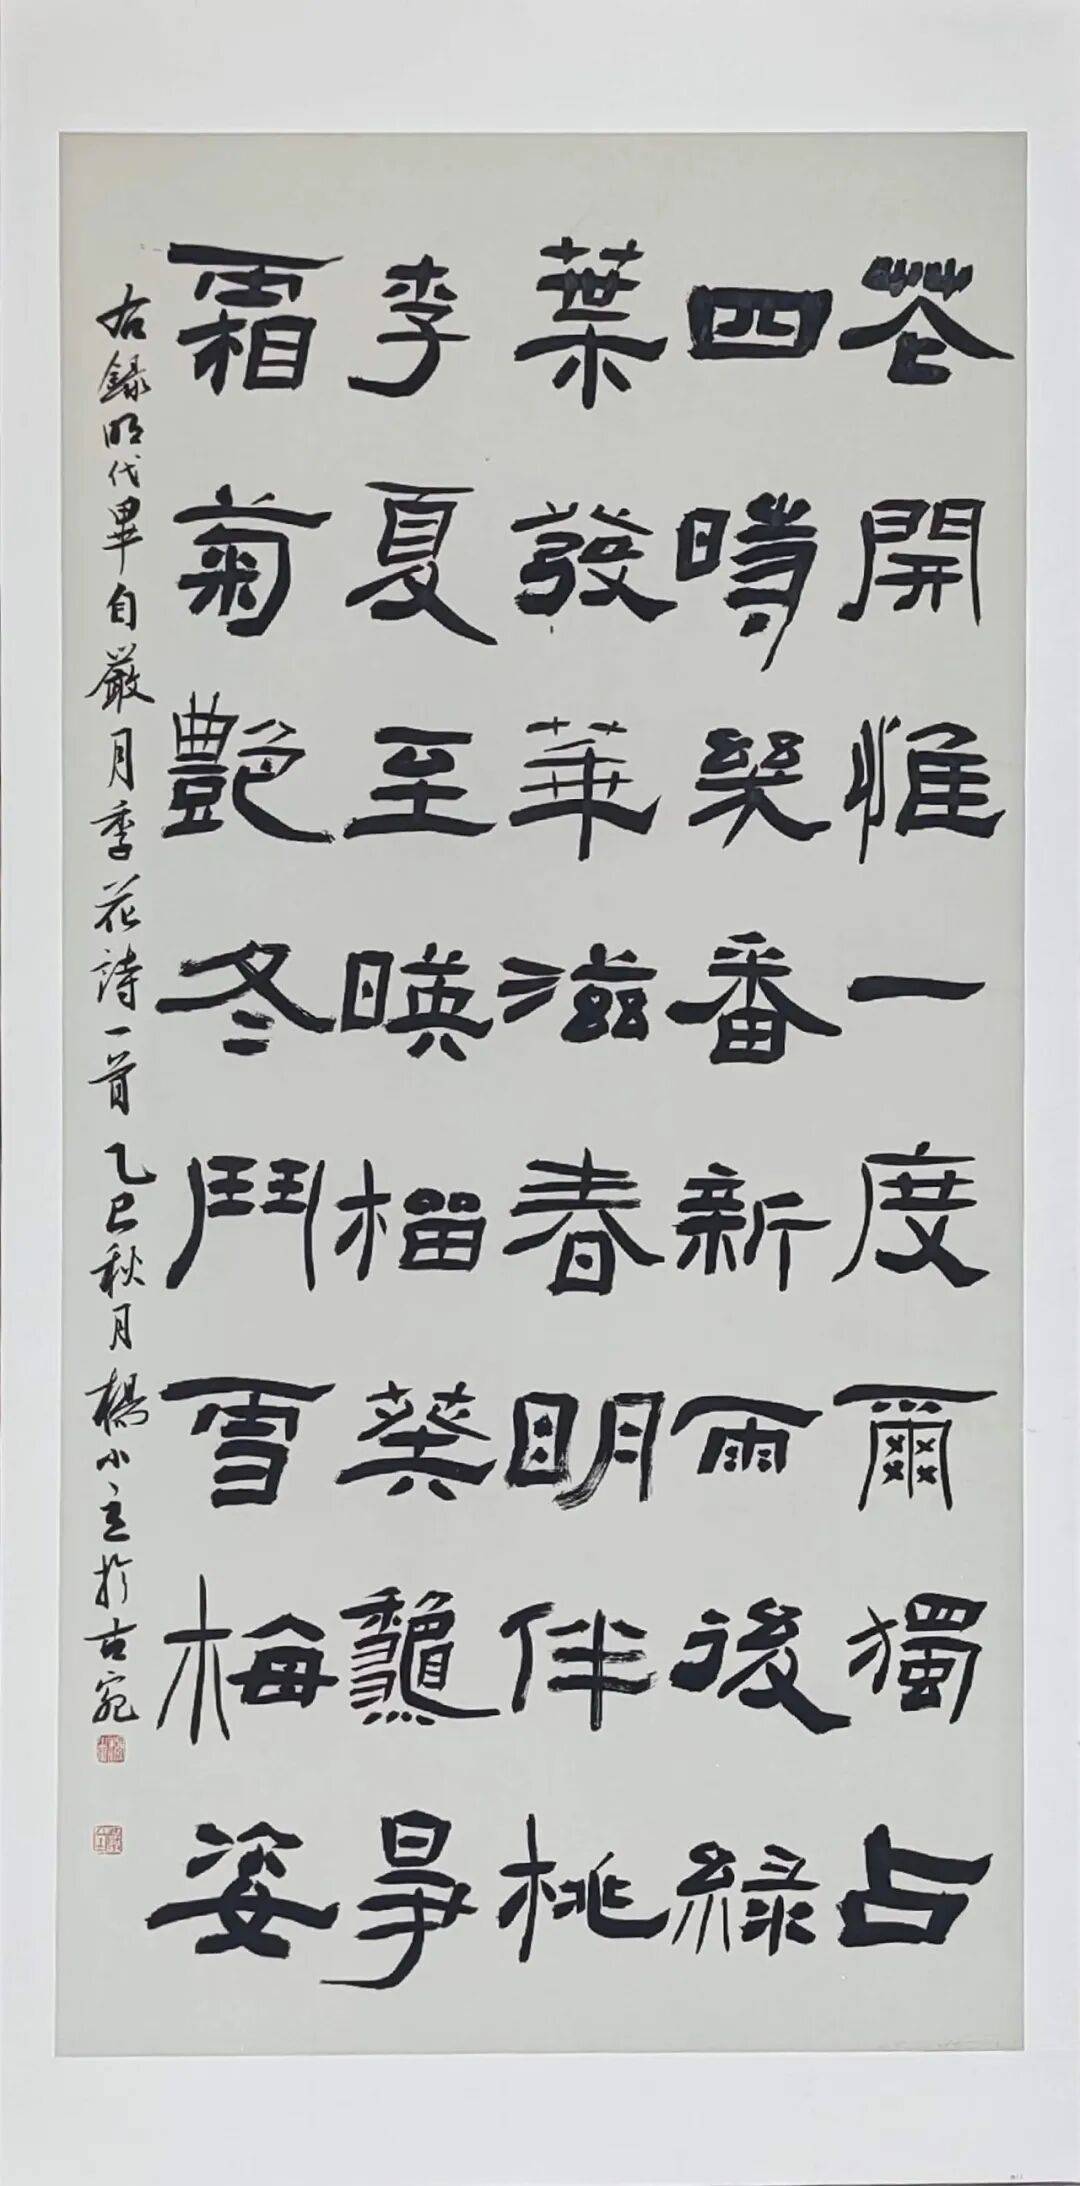 花開惟一度爾獨占
四時幾番新雨後綠
葉發華滋春明伴桃
李夏至暎榴葵
霜菊艷冬鬥雪梅姿
右錄明代畢自嚴月季花詩一首乙巳秋月楊小立於古宛